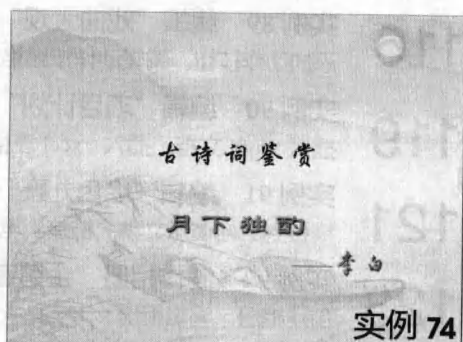 古诗词鉴赏
月下独酌
——李白
实例 74